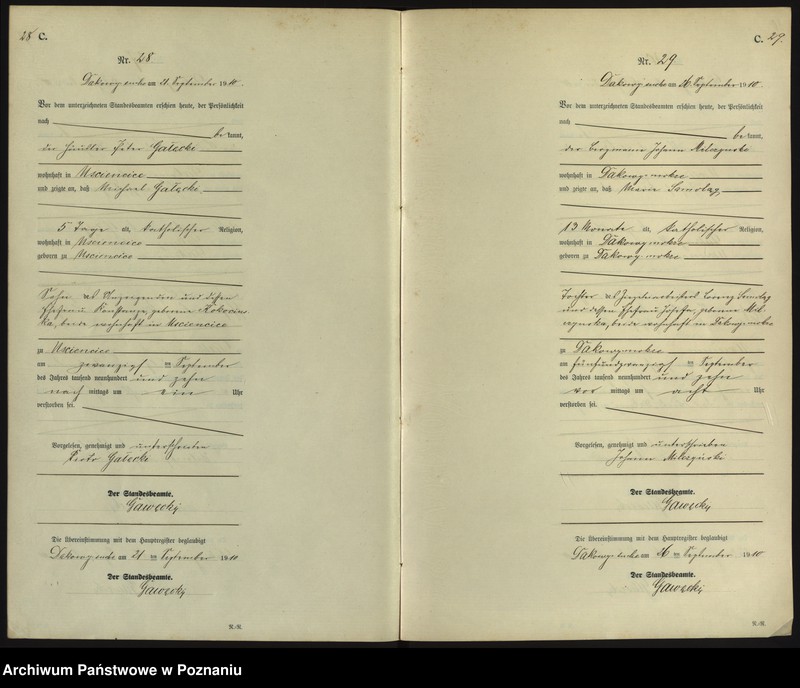 28 C.
Nr. 28
Dakowy mokre am 21. September 1910.
Vor dem unterzeichneten Standesbeamten erschien heute, der Persönlichkeit
nach
be kannt,
der Häusler Peter Gałecki
wohnhaft in Usciencice
und zeigte an, daß Michael Gałecki,
5 Tage alt, katholischer Religion,
wohnhaft in Usciencice
geboren zu Usciencice
Sohn des Anzeigenden und dessen
Ehefrau Konstanze, geborene
beide wohnhaft in Usciencice
zu Usciencice
am zwanzigsten September
des Jahres tausend neunhundert und zehn
nach mittags um ein Uhr
verstorben sei.
Vorgelesen, genehmigt und unterschrieben
Piotr Gałecki
Der Standesbeamte.
Gawęcki
Die Übereinstimmung mit dem Hauptregister beglaubigt
Dakowy mokre am 21 ten September 1910
Der Standesbeamte.
Gawęcki
R.-R.
C. 29.
Nr. 29
Dakowy mokre am 26 September 1910
Vor dem unterzeichneten Standesbeamten erschien heute, der Persönlichkeit
nach
be kannt,
der Johann
wohnhaft in Dakowy-mokre
und zeigte an, daß Marie Samolag,
13 Monate alt, katholischer Religion,
wohnhaft in Dakowy-mokre
geboren zu Dakowy-mokre
Tochter des Ziegeleiarbeiters Lorenz Samolag
und dessen Ehefrau Josefa, geborene
beide wohnhaft in Dakowy-mokre
zu Dakowymokre
am fünfundzwanzigsten September
des Jahres tausend neunhundert und zehn
vor mittags um acht Uhr
verstorben sei.
Vorgelesen, genehmigt und unterschrieben
Johann
Der Standesbeamte.
Gawęcki
Die Übereinstimmung mit dem Hauptregister beglaubigt
Dakowy mokre am 26 ten September 1910
Der Standesbeamte.
Gawęcki
R.-R.
Archiwum Państwowe w Poznaniu